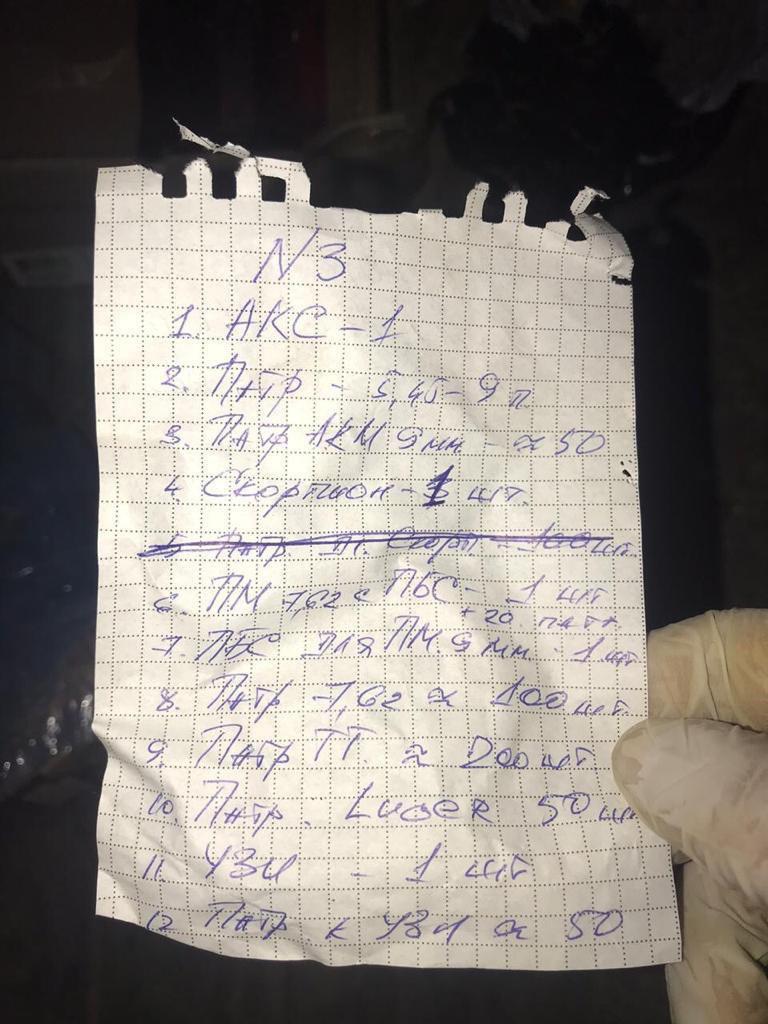 N3
1. АКС - 1
2. Патр - 5,45 - 9 п
3. Патр АКМ 9 мм - ≈ 50
4. Скорпион - 1 шт.
5 Патр дл. Скорп - 100 шт.
6. ПМ 7,62 с ПБС - 1 шт
+ 20 патр
7. ПБС для ПМ 9 мм - 1 шт
8. Патр - 7,62 ≈ 100 шт.
9. Патр ТТ ≈ шт
10. Патр. Luger 50 ш
11. УЗИ - 1 шт
12 Патр к УЗИ ≈ 50